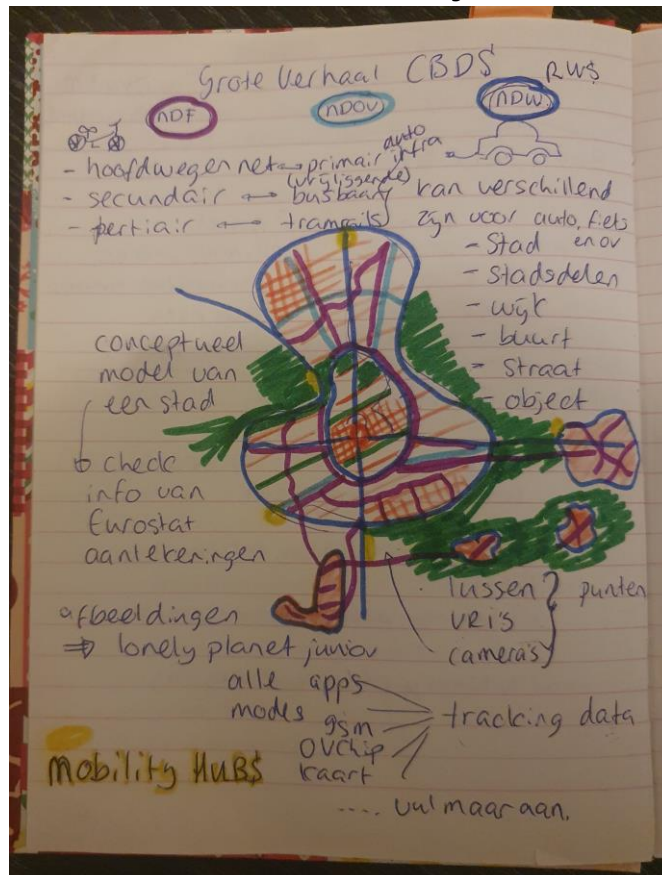 Grote Verhaal CBDS RWS
NDF NDOV NDW
- hoofdwegennet ↔ primair auto infra
(vrijliggende)
- secundair ↔ busbaan
- pertiair ↔ tramrails
kan verschillend
zijn voor auto, fiets
en ov
- Stad
- stadsdelen
- wijk
- buurt
- straat
- object
conceptueel
model van
een stad
↳ check
info van
Eurostat
aantekeningen
afbeeldingen
⇒ lonely planet junior
lussen
VRI's
camera's
punten
alle apps
modes gsm
OVchip
kaart
tracking data
Mobility HUBS
.... vul maar aan.